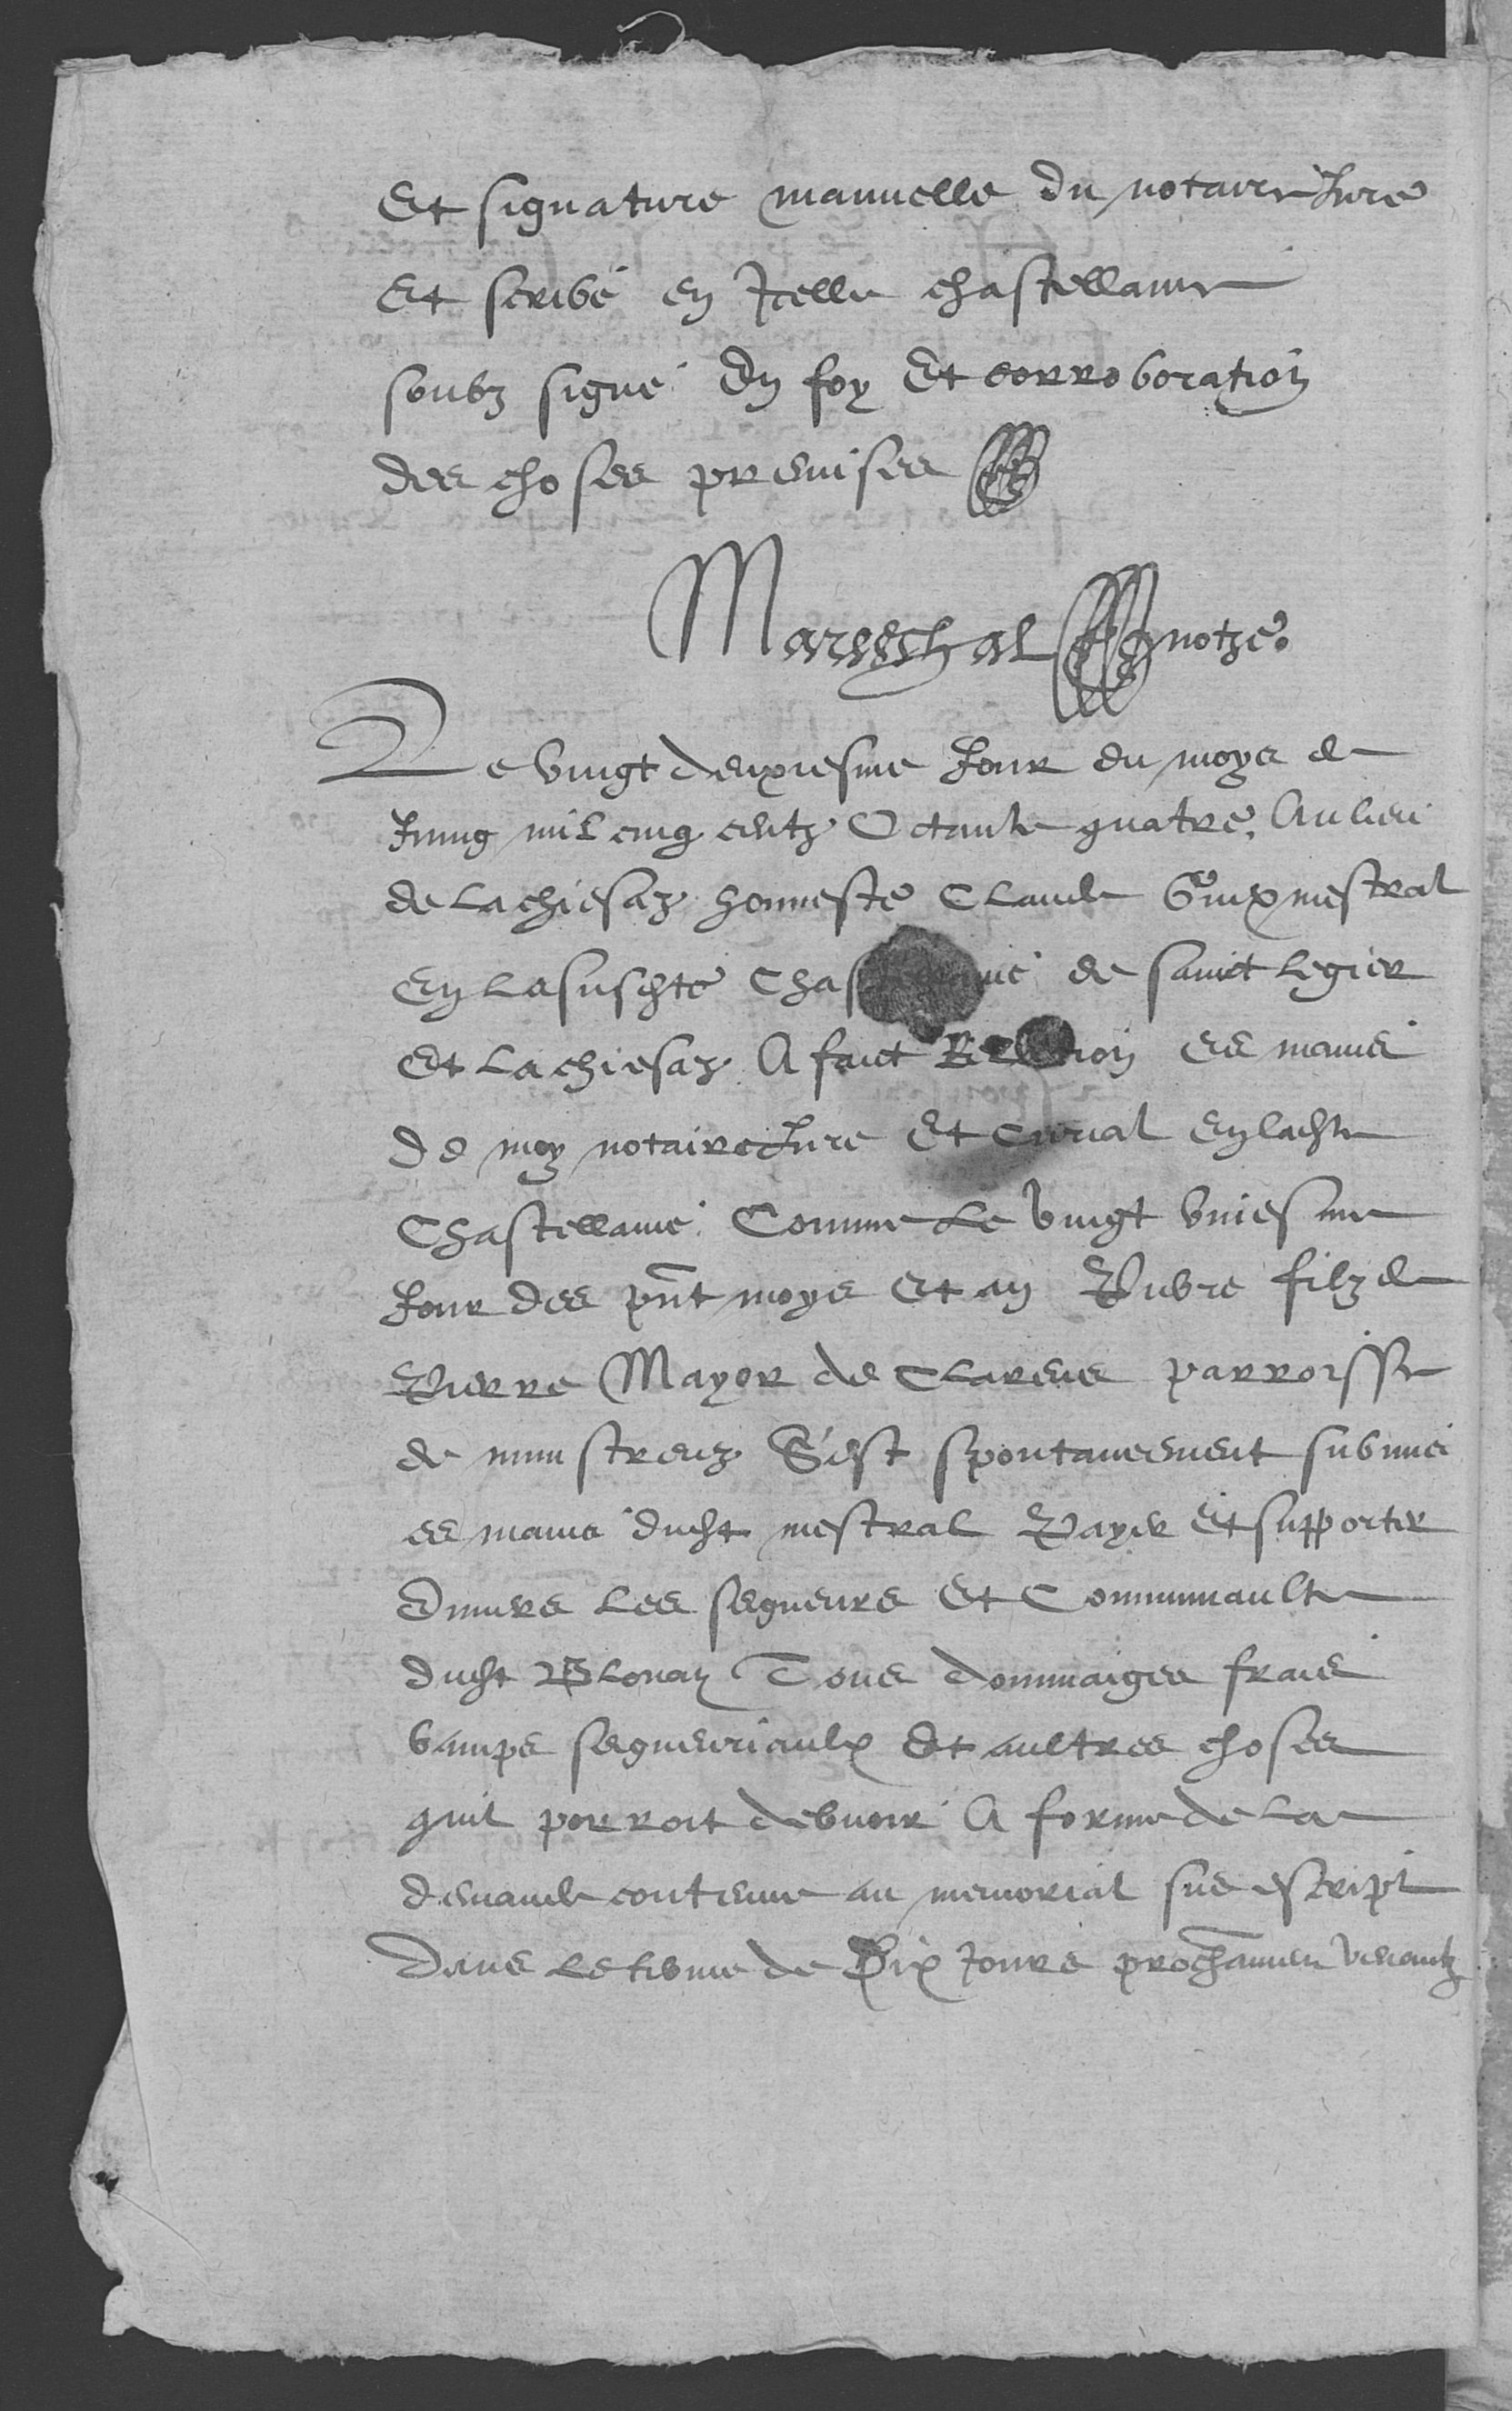 Et signature manuelle du notaire Jure
Et scribe en Jcelle chastellanie
soubz signe En foy Et corroboration
des choses premises
Mareschal notre.
Le vingt deuxiesme Jour du moys de
Jung mil cinq centz Octante quatre, Au lieu
de la chiesaz honneste Claude Guex mestral
En la suschte Chastellanie de sainct legier
Et la chiesaz A faict Relation es mains
de moy notaire Jure Et Curial En lachte
Chastellanie Comme Le vingt vniesme
Jour des pnt moys Et an Pierre filz de
Pierre Mayor de Clarens parroisse
de mustreuz S'est spontaneement submis
es mains ducht mestral Payer Et supporter
Enuers les segneurs Et Communaulte
ducht Blonay Tous dommaiges frais
bamps segneuriaulx Et aultres choses
quil porroit debuoir A forme de la
demande contenue au memorial sus escript
Dans le terme de Dix Jours prochainem venantz